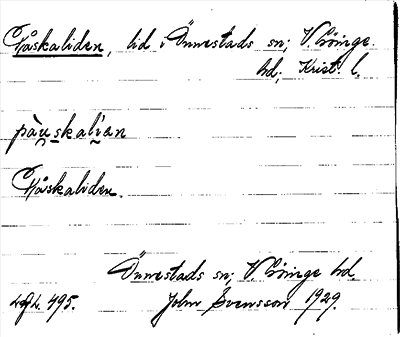 Påskaliden, lid i Önnestads sn; V. Göinge
hd; Krist. l.
pàu̯skali̯an
Påskaliden.
Önnestads sn; V Göinge hd.
495. John Svensson 1929.